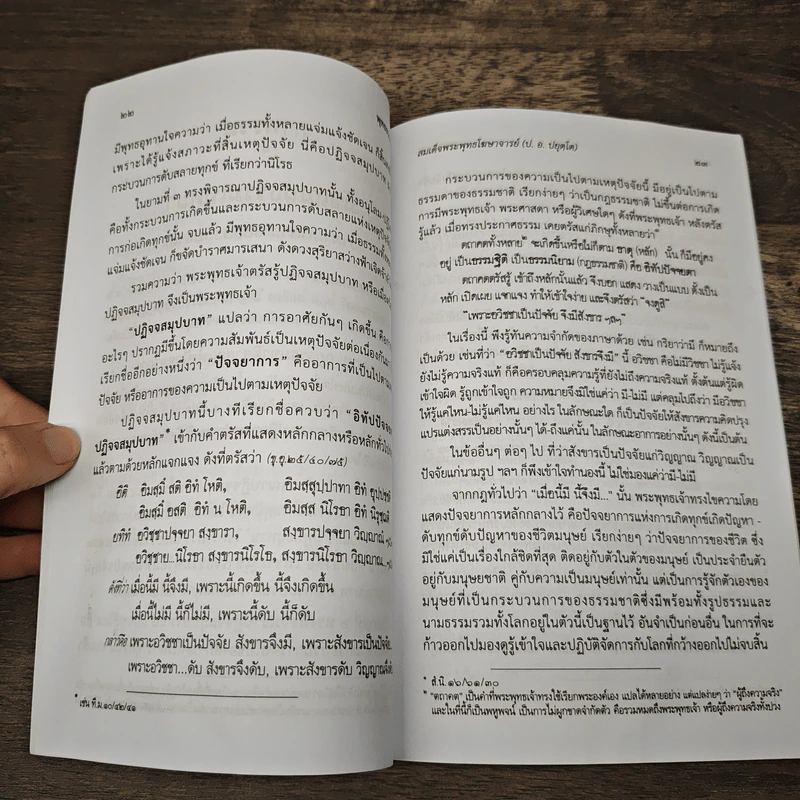 ๒๒
มีพุทธอุทานใจความว่า เมื่อธรรมทั้งหลายแจ่มแจ้งชัดเจน
เพราะได้รู้แจ้งสภาวะที่สิ้นเหตุปัจจัย นี่คือปฏิจจสมุปบาท
กระบวนการดับสลายทุกข์ ที่เรียกว่านิโรธ
ในยามที่ ๓ ทรงพิจารณาปฏิจจสมุปบาทนั้น ทั้งอนุโลม
คือทั้งกระบวนการเกิดขึ้นและกระบวนการดับสลายแห่งเหตุปัจจัย
การก่อเกิดทุกข์นั้น จบแล้ว มีพุทธอุทานใจความว่า เมื่อธรรมทั้ง
แจ่มแจ้งชัดเจน ก็ขจัดบำราศมารเสนา ดังดวงสุริยาสว่างฟ้าเจิดจ้า
รวมความว่า พระพุทธเจ้าตรัสรู้ปฏิจจสมุปบาท หรือเมื่อ
ปฏิจจสมุปบาท จึงเป็นพระพุทธเจ้า
“ปฏิจจสมุปบาท” แปลว่า การอาศัยกันๆ เกิดขึ้น คือ
อะไรๆ ปรากฏมีขึ้นโดยความสัมพันธ์เป็นเหตุปัจจัยต่อเนื่องกันมา
เรียกชื่ออีกอย่างหนึ่งว่า “ปัจจยาการ” คืออาการที่เป็นไปตาม
ปัจจัย หรืออาการของความเป็นไปตามเหตุปัจจัย
ปฏิจจสมุปบาทนี้บางทีเรียกชื่อควบว่า “อิทัปปัจจย
ปฏิจจสมุปบาท”* เข้ากับคำตรัสที่แสดงหลักกลางหรือหลักทั่วไป
แล้วตามด้วยหลักแจกแจง ดังที่ตรัสว่า (ขุ.ขุ.๒๕/๔๐/๗๕)
อิติ อิมสฺมึ สติ อิทํ โหติ, อิมสฺสุปฺปาทา อิทํ อุปฺปชฺชติ
อิมสฺมึ อสติ อิทํ น โหติ, อิมสฺส นิโรธา อิทํ นิรุชฺฌติ
ยทิทํ อวิชฺชาปจฺจยา สงฺขารา, สงฺขารปจฺจยา วิญฺญาณํ
อวิชฺชาย...นิโรธา สงฺขารนิโรโธ, สงฺขารนิโรธา วิญฺญาณ
ดังที่ว่า เมื่อนี้มี นี้จึงมี, เพราะนี้เกิดขึ้น นี้จึงเกิดขึ้น
เมื่อนี้ไม่มี นี้ก็ไม่มี, เพราะนี้ดับ นี้ก็ดับ
กล่าวคือ เพราะอวิชชาเป็นปัจจัย สังขารจึงมี, เพราะสังขารเป็นปัจจัย
เพราะอวิชชา...ดับ สังขารจึงดับ, เพราะสังขารดับ วิญญาณจึง
* เช่น ที.ม.๑๐/๔๒/๔๑
สมเด็จพระพุทธโฆษาจารย์ (ป. อ. ปยุตฺโต)
๒๓
กระบวนการของความเป็นไปตามเหตุปัจจัยนี้ มีอยู่เป็นไปตาม
ธรรมดาของธรรมชาติ เรียกง่ายๆ ว่าเป็นกฎธรรมชาติ ไม่ขึ้นต่อการเกิด
การมีพระพุทธเจ้า พระศาสดา หรือผู้วิเศษใดๆ ดังที่พระพุทธเจ้า หลังตรัส
รู้แล้ว เมื่อทรงประกาศธรรม เคยตรัสแก่ภิกษุทั้งหลายว่า*
ตถาคตทั้งหลาย* จะเกิดขึ้นหรือไม่ก็ตาม ธาตุ (หลัก) นั้น ก็มีอยู่คง
อยู่ เป็นธรรมฐิติ เป็นธรรมนิยาม (กฎธรรมชาติ) คือ อิทัปปัจจยตา
ตถาคตตรัสรู้ เข้าถึงหลักนั้นแล้ว จึงบอก แสดง วางเป็นแบบ ตั้งเป็น
หลัก เปิดเผย แจกแจง ทำให้เข้าใจง่าย และจึงตรัสว่า “จงดูสิ”
“เพราะอวิชชาเป็นปัจจัย จึงมีสังขาร ฯลฯ”
ในเรื่องนี้ พึงรู้ทันความจำกัดของภาษาด้วย เช่น กริยาว่ามี ก็หมายถึง
เป็นด้วย เช่นที่ว่า “อวิชชาเป็นปัจจัย สังขารจึงมี” นี้ อวิชชา คือไม่มีวิชชา ไม่รู้แจ้ง
ยังไม่รู้ความจริงแท้ ก็คือครอบคลุมความรู้ที่ยังไม่ถึงความจริงแท้ ตั้งต้นแต่รู้ผิด
เข้าใจผิด รู้ถูกเข้าใจถูก ความหมายจึงมิใช่แค่ว่า มี-ไม่มี แต่คลุมไปถึงว่า มีอวิชชา
ให้รู้แค่ไหน-ไม่รู้แค่ไหน อย่างไร ในลักษณะใด ก็เป็นปัจจัยให้สังขารความคิดปรุง
แปรแต่งสรรเป็นอย่างนั้นๆ ได้-ถึงแค่นั้น ในลักษณะอาการอย่างนั้นๆ ดังนี้เป็นต้น
ในข้ออื่นๆ ต่อๆ ไป ที่ว่าสังขารเป็นปัจจัยแก่วิญญาณ วิญญาณเป็น
ปัจจัยแก่นามรูป ฯลฯ ก็พึงเข้าใจทำนองนี้ ไม่ใช่มองแค่ว่ามี-ไม่มี
จากกฎทั่วไปว่า “เมื่อนี้มี นี้จึงมี...” นั้น พระพุทธเจ้าทรงไขความโดย
แสดงปัจจยาการหลักกลางไว้ คือปัจจยาการแห่งการเกิดทุกข์เกิดปัญหา -
ดับทุกข์ดับปัญหาของชีวิตมนุษย์ เรียกง่ายๆ ว่าปัจจยาการของชีวิต ซึ่ง
มิใช่แค่เป็นเรื่องใกล้ชิดที่สุด ติดอยู่กับตัวในตัวของมนุษย์ เป็นประจำยืนตัว
อยู่กับมนุษยชาติ คู่กับความเป็นมนุษย์เท่านั้น แต่เป็นการรู้จักตัวเองของ
มนุษย์ที่เป็นกระบวนการของธรรมชาติซึ่งมีพร้อมทั้งรูปธรรมและ
นามธรรมรวมทั้งโลกอยู่ในตัวนี้เป็นฐานไว้ อันจำเป็นก่อนอื่น ในการที่จะ
ก้าวออกไปมองดูรู้เข้าใจและปฏิบัติจัดการกับโลกที่กว้างออกไปไม่จบสิ้น
* สํ.นิ.๑๖/๖๑/๓๐
* “ตถาคต” เป็นคำที่พระพุทธเจ้าทรงใช้เรียกพระองค์เอง แปลได้หลายอย่าง แต่แปลง่ายๆ ว่า “ผู้ถึงความจริง”
และในที่นี้ก็เป็นพหูพจน์ เป็นการไม่ผูกขาดจำกัดตัว คือรวมหมดถึงพระพุทธเจ้า หรือผู้ถึงความจริงทั้งปวง